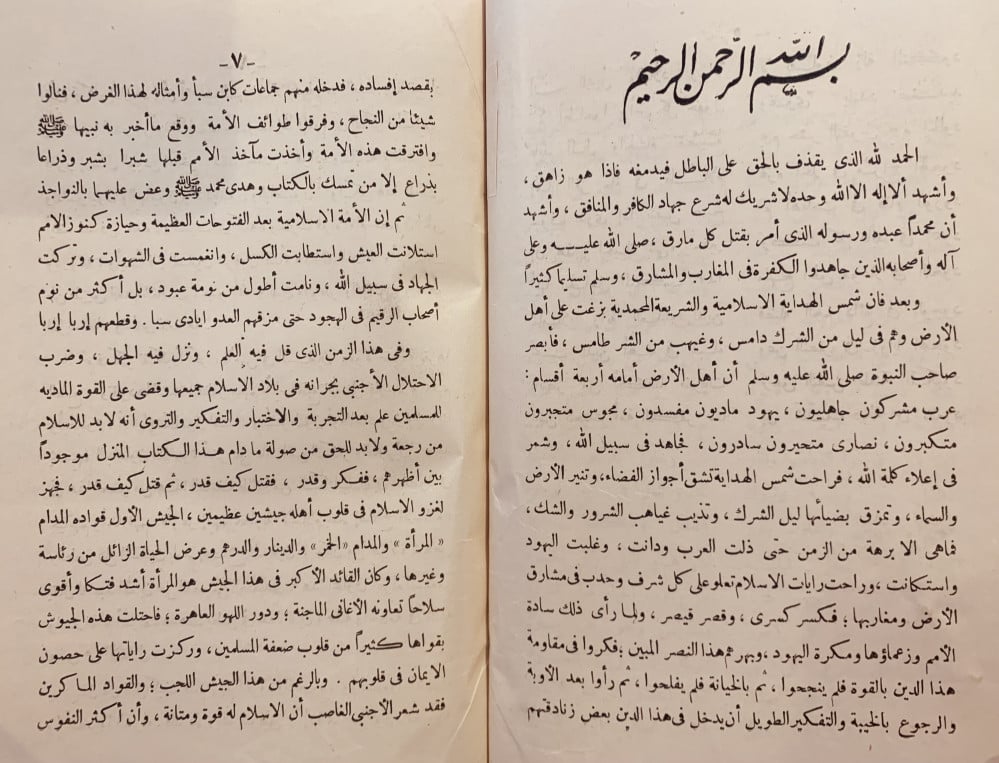 بسم الله الرحمن الرحيم
الحمد لله الذى يقذف بالحق على الباطل فيدمغه فاذا هو زاهق ،
وأشهد ألا إله الا الله وحده لا شريك له شرع جهاد الكافر والمنافق ، وأشهد
أن محمداً عبده ورسوله الذى أمر بقتل كل مارق ، صلى الله عليــــه وعلى
آله وأصحابه الذين جاهدوا الكفرة فى المغارب والمشارق ، وسلم تسليما كثيراً
وبعد فان شمس الهداية الاسلامية والشريعة المحمدية بزغت على أهل
الأرض وهم فى ليل من الشرك دامس ، وغيهب من الشر طامس ، فأبصر
صاحب النبوة صلى الله عليه وسلم أن أهل الأرض أمامه أربعة أقسام :
عرب مشركون جاهليون ، يهود ماديون مفسدون ، مجوس متجبرون
متكبرون ، نصارى متحيرون سادرون ، فجاهد فى سبيل الله ، وشمر
فى إعلاء كلمة الله ، فراحت شمس الهداية تشق أجواز الفضاء ، وتنير الأرض
والسماء ، وتمزق بضيائها ليل الشرك ، وتذيب غياهب الشرور والشك ،
فماهى الا برهة من الزمن حتى ذلت العرب ودانت ، وغلبت اليهود
واستكانت ، وراحت رايات الاسلام تعلو على كل شرف وحدب فى مشارق
الأرض ومغاربها ؛ فكسر كسرى ، وقصر قيصر ، ولما رأى ذلك سادة
الأمم وزعماؤها ومكرة اليهود ، وبهرهم هذا النصر المبين ؛ فكروا فى مقاومة
هذا الدين بالقوة فلم ينجحوا ، ثم بالخيانة فلم يفلحوا ، ثم رأوا بعد الأوبة
والرجوع بالخيبة والتفكير الطويل أن يدخل فى هذا الدين بعض زنادقتهم
-٧-
بقصد إفساده ، فدخله منهم جماعات كابن سبأ وأمثاله لهذا الغرض ، فنالوا
شيئا من النجاح ، وفرقوا طوائف الأمة ووقع ماأخبر به نبيها ﷺ
وافترقت هذه الأمة وأخذت مآخذ الأمم قبلها شبرا بشبر وذراعا
بذراع إلا من تمسك بالكتاب وهدى محمد ﷺ وعض عليهما بالنواجذ
ثم إن الأمة الاسلامية بعد الفتوحات العظيمة وحيازة كنوز الامم
استلانت العيش واستطابت الكسل ، وانغمست فى الشهوات ، وتركت
الجهاد فى سبيل الله ، ونامت أطول من نومة عبود ، بل أكثر من نوم
أصحاب الرقيم فى الهجود حتى مزقهم العدو ايادى سبا . وقطعهم إربا إربا
وفى هذا الزمن الذى قل فيه العلم ، ونزل فيه الجهل ، وضرب
الاحتلال الأجنبي بجرانه فى بلاد الاسلام جميعها وقضى على القوة الماديه
للمسلمين علم بعد التجربة والاختبار والتفكير والتروى أنه لابد للاسلام
من رجعة ولا بد للحق من صولة ما دام هــذا الكتاب المنزل موجوداً
بين أظهرهم ، ففكر وقدر ، فقتل كيف قدر ، ثم قتل كيف قدر ، فجهز
لغزو الاسلام فى قلوب أهله جيشين عظيمين ، الجيش الأول قواده المدام
« المرأة » والمدام «الخمر» والدينار والدرهم وعرض الحياة الزائل من رئاسة
وغيرها ، وكان القائد الأكبر فى هذا الجيش هو المرأة أشد فتكا وأقوى
سلاحاً تعاونه الأغانى الماجنة ؛ ودور اللهو العاهرة ؛ فاحتلت هذه الجيوش
بقواها كثيراً من قلوب ضعفة المسلمين ، وركزت راياتها على حصون
الايمان فى قلوبهم . وبالرغم من هذا الجيش اللجب ؛ والقواد الماكرين
فقد شعر الأجنبى الغاصب أن الاسلام له قوة ومتانة ، وأن أكثر النفوس